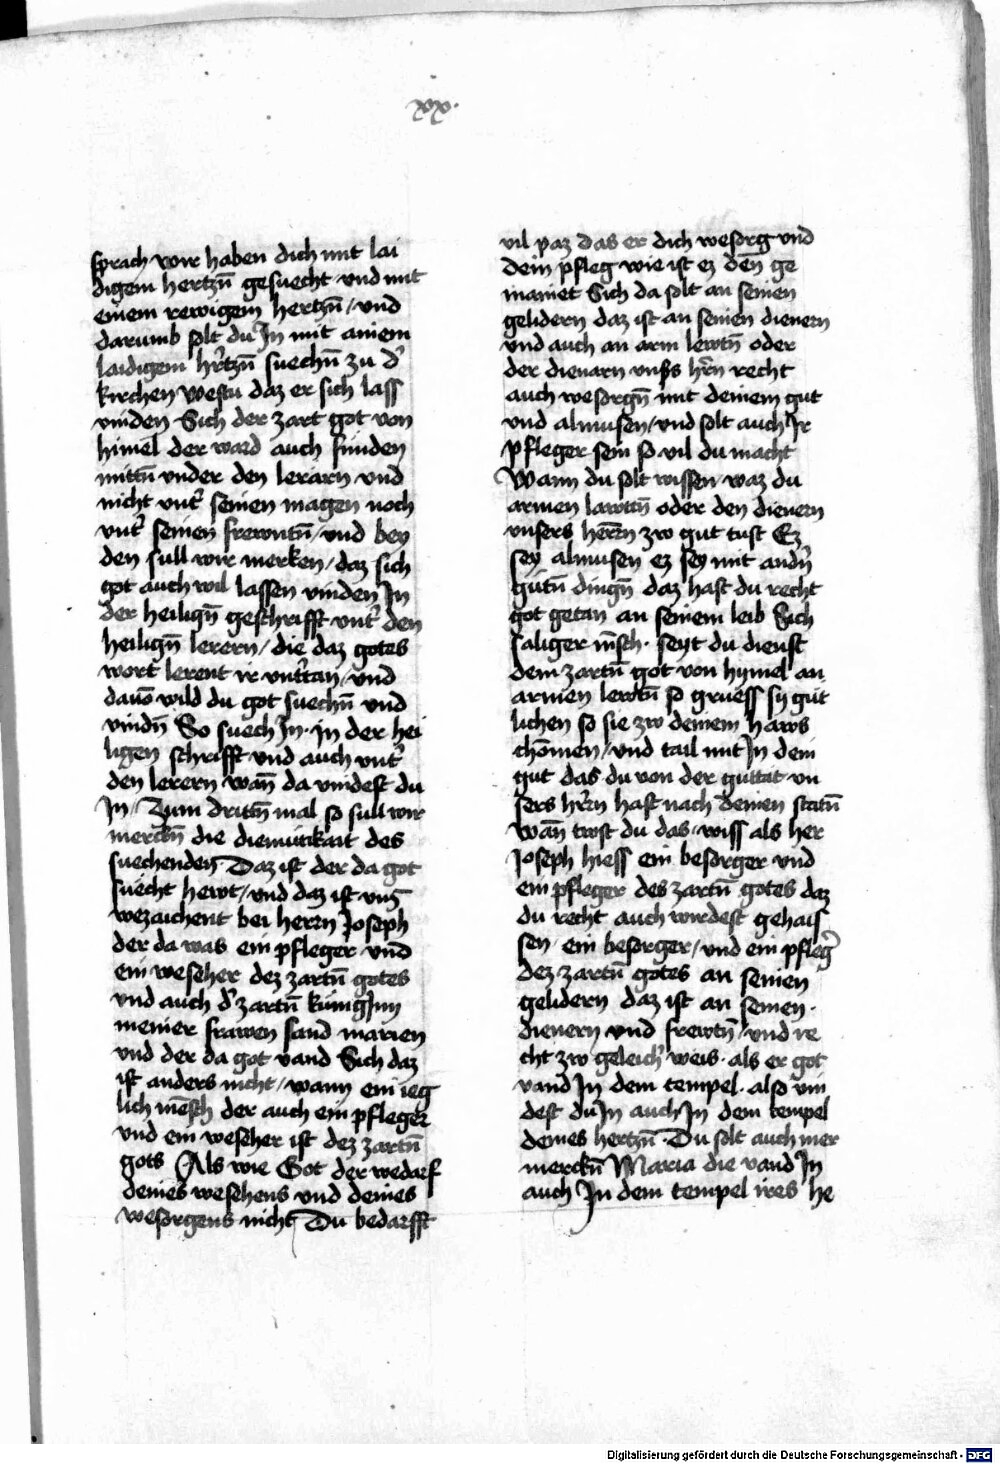 xx.
sprach wir haben dich mit lai
digem hertzn̄ gesuecht vnd mit
einem rewigem hertzn̄ / vnd
darumb solt du In mit ainem
laidigem hr̄tzn̄ suechn̄ zu d'
kirchen westu daz er sich lass
vinden Sich der zart got von
himel der ward auch funden
mittn̄ vnder den lerarn vnd
nicht vnt' seinen magen noch
vnt' seinen frewntn̄ / vnd bey
den sull wir merken / daz sich
got auch wil lassen vinden In
der heilign̄ geschrifft vnt' den
heilign̄ lerern / die daz gotes
wort lerent ir vnt'tan / vnd
dauō wild du got suechn̄ vnd
vindn̄ So suech In · in der hei
ligen schrifft vnd auch vnt'
den lerern wan̄ da vindest du
In / Zum drittn̄ mal so sull wir
merckn̄ die diemutikait des
suechenden Daz ist der da got
suecht hewt / vnd daz ist vns
wezaichent bei herrn Joseph
der da was ein pfleger vnd
ein weseher dez zartn̄ gotes
vnd auch d' zartn̄ kunigInn
meiner frawen sand marien
vnd der da got vand Sich daz
ist anders nicht / wann ein ieg
lich mēsch der auch ein pfleger
vnd ein weseher ist dez zartn̄
gots Als wie Got der wedarf
deines wesehens vnd deines
wesorgens nicht Du bedarfft
vil paz das er dich wesorg vnd
dein pfleg wie ist ez den̄ ge
mainet Sich da solt an seinen
gelidern daz ist an seinen dienern
vnd auch an arm lewtn̄ oder
der dienarn vnss hr̄n recht
auch wesorgn̄ mit deinem gut
vnd almusen / vnd solt auch Ir
pfleger sein so vil du macht
Wann du solt wissen waz du
armen lawttn̄ oder den dienern
vnsers herrn zw gut tust Ez
sey almusen ez sey mit andn̄
gutn̄ dingn̄ daz hast du recht
got getan an seinem leib Sich
saliger mēsch · seyt du dienst
dem zartn̄ got von hymel an
armen lewtn̄ so gruess sy gut
lichen so sie zw deinem haws
chōmen / vnd tail mit In dein
gut das du von der guttat vn
sers hr̄rn hast nach deinen statn̄
Wan̄ tust du das / wiss als her
Joseph hiess ein besorger vnd
ein pfleger des zartn̄ gotes daz
du recht auch wirdest gehais
sen ein besorger / vnd ein pfleg'
dez zartn̄ gotes an seinen
gelidern daz ist an seinen ·
dienern vnd frewtn̄ / vnd re
cht zw geleich' weis · als er got
vand In dem tempel · also vin
dest du In auch In dem tempel
deines hertzn̄ Du solt auch mer
merckn̄ Maria die vand In
auch In dem tempel ires he
Digitalisierung gefördert durch die Deutsche Forschungsgemeinschaft - DFG